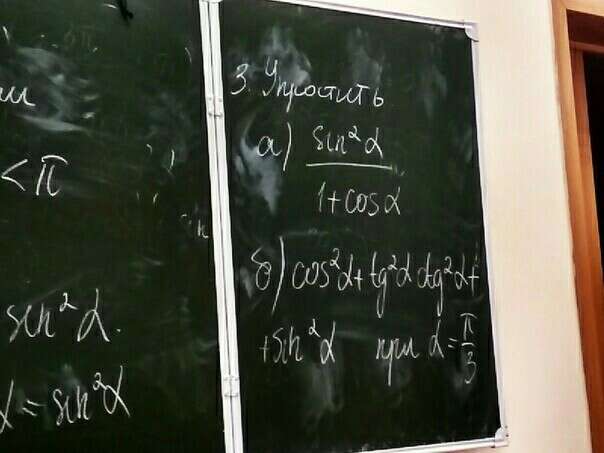 < π
sin²α.
= sin²α
3. Упростить
а) sin²α
1 + cosα
б) cos²α + tg²α ctg²α +
+ sin²α при α = π/3